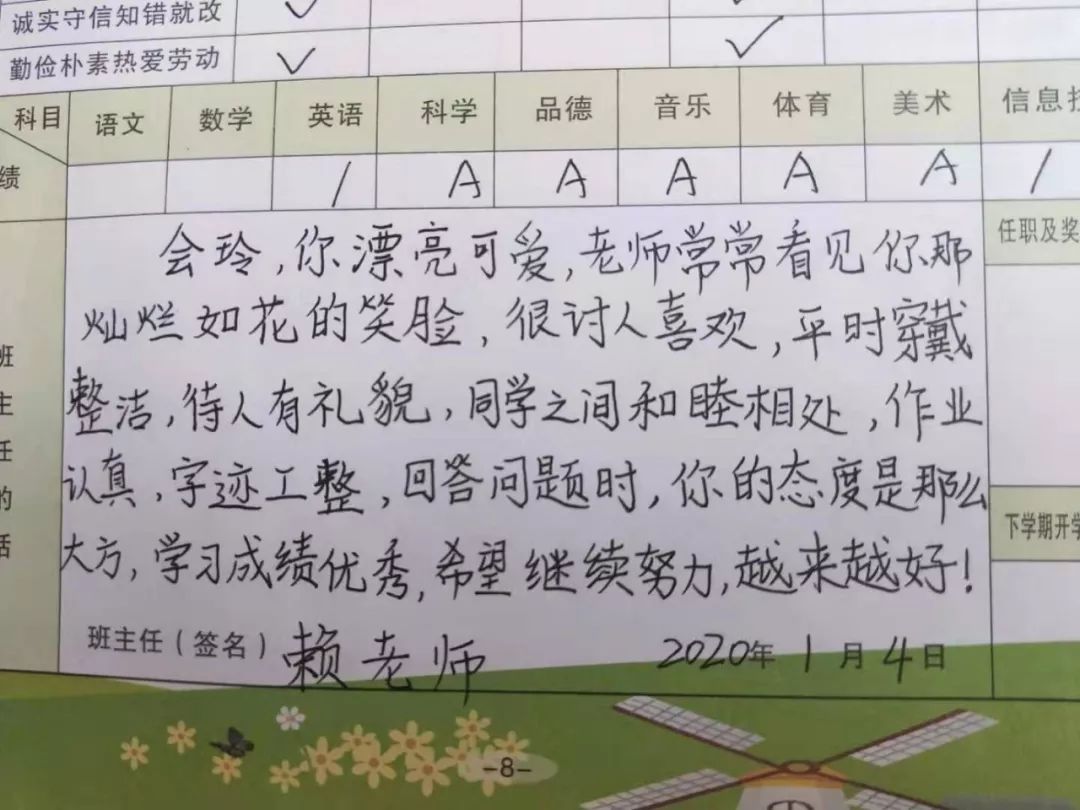 诚实守信知错就改 ✓
勤俭朴素热爱劳动 ✓ ✓
科目 语文 数学 英语 科学 品德 音乐 体育 美术 信息
绩 / A A A A A /
会玲,你漂亮可爱,老师常常看见你那
灿烂如花的笑脸,很讨人喜欢,平时穿戴
整洁,待人有礼貌,同学之间和睦相处,作业
认真,字迹工整,回答问题时,你的态度是那么
大方,学习成绩优秀,希望继续努力,越来越好!
班主任(签名) 赖老师 2020年1月4日
班
主
任
的
话
任职及奖
下学期开学
-8-